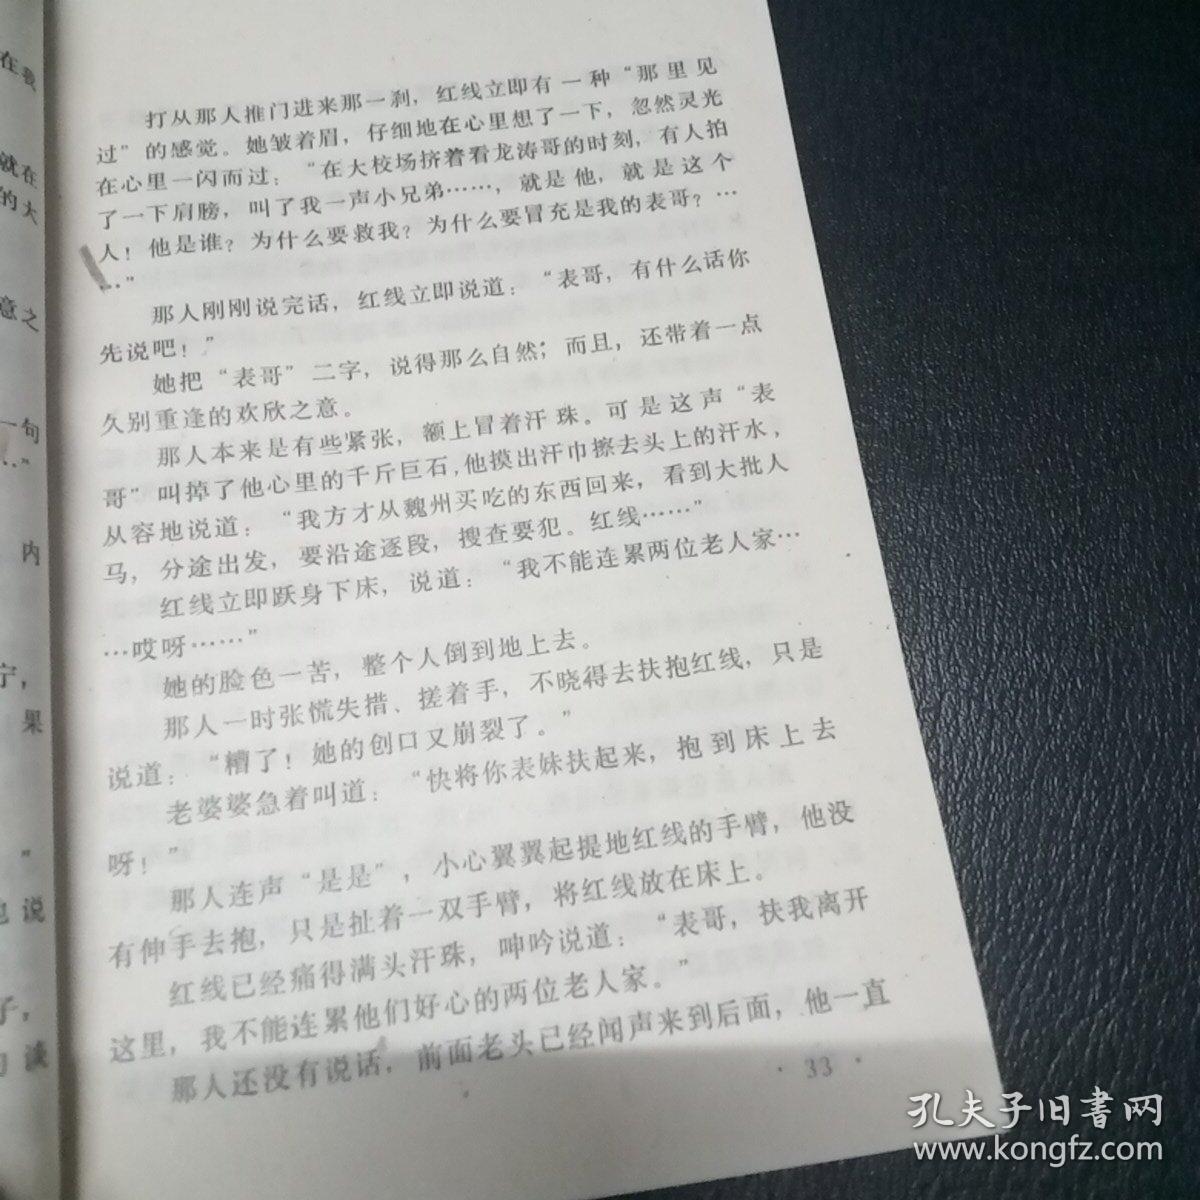 在我
就在
的大
意之
一句
…”
内
宁，
果
”
也说
子，
谈
打从那人推门进来那一刹，红线立即有一种“那里见
过”的感觉。她皱着眉，仔细地在心里想了一下，忽然灵光
在心里一闪而过：“在大校场挤着看龙涛哥的时刻，有人拍
了一下肩膀，叫了我一声小兄弟……，就是他，就是这个
人！他是谁？为什么要救我？为什么要冒充是我的表哥？…
…”
那人刚刚说完话，红线立即说道：“表哥，有什么话你
先说吧！”
她把“表哥”二字，说得那么自然；而且，还带着一点
久别重逢的欢欣之意。
那人本来是有些紧张，额上冒着汗珠。可是这声“表
哥”叫掉了他心里的千斤巨石，他摸出汗巾擦去头上的汗水，
从容地说道：“我方才从魏州买吃的东西回来，看到大批人
马，分途出发，要沿途逐段，搜查要犯。红线……”
红线立即跃身下床，说道：“我不能连累两位老人家…
…哎呀……”
她的脸色一苦，整个人倒到地上去。
那人一时张慌失措、搓着手，不晓得去扶抱红线，只是
说道：“糟了！她的创口又崩裂了。”
老婆婆急着叫道：“快将你表妹扶起来，抱到床上去
呀！”
那人连声“是是”，小心翼翼起提地红线的手臂，他没
有伸手去抱，只是扯着一双手臂，将红线放在床上。
红线已经痛得满头汗珠，呻吟说道：“表哥，扶我离开
这里，我不能连累他们好心的两位老人家。”
那人还没有说话，前面老头已经闻声来到后面，他一直
·33·
孔夫子旧書网
www.kongfz.com